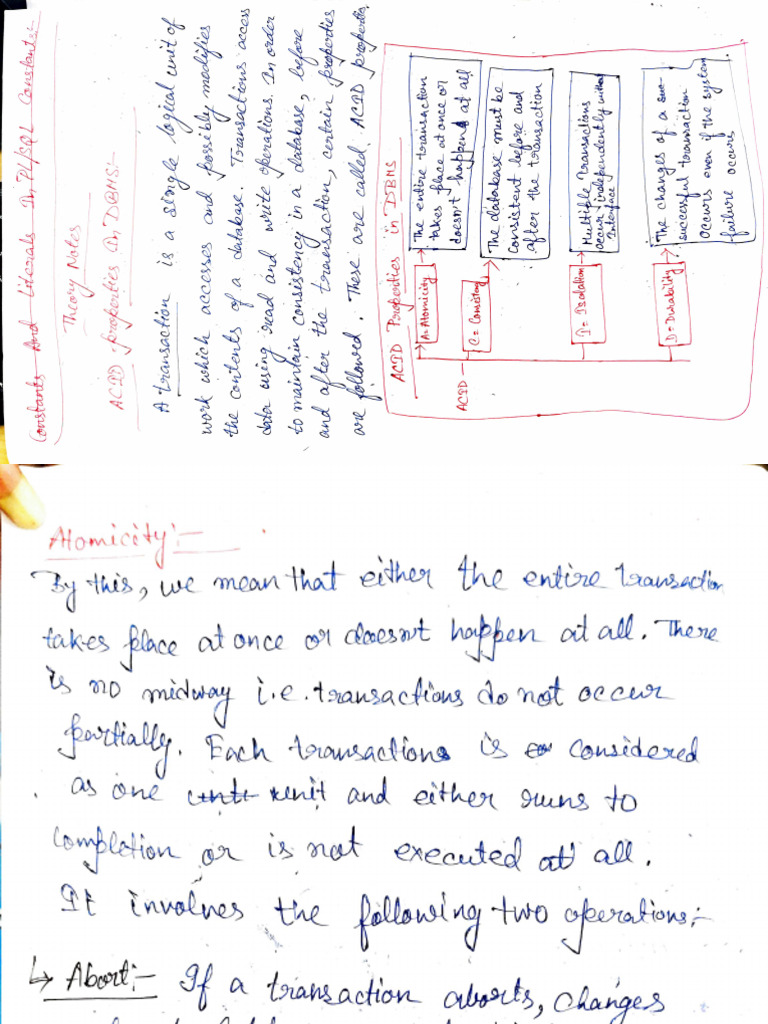 Constants And Literals In PL/SQL Constants:-
Theory Notes
ACID properties In DBMS:-
A transaction is a single logical unit of
work which accesses and possibly modifies
the contents of a database. Transactions access
data using read and write operations. In order
to maintain consistency in a database, before
and after the transaction, certain properties
are followed. These are called ACID properties
ACID Properties in DBMS
ACID
A = Atomicity
The entire transaction
takes place at once or
doesn't happen at all
C = Consistency
The database must be
consistent before and
after the transaction
I = Isolation
Multiple Transactions
occur independently without
Interface
D = Durability
The changes of a suc-
successful transaction
occurs even if the system
failure occurs
Atomicity:-
By this, we mean that either the entire transaction
takes place at once or doesn't happen at all. There
is no midway i.e. transactions do not occur
partially. Each transactions is considered
as one unit and either runs to
completion or is not executed at all.
It involves the following two operations:-
↳ Abort:- If a transaction aborts, changes